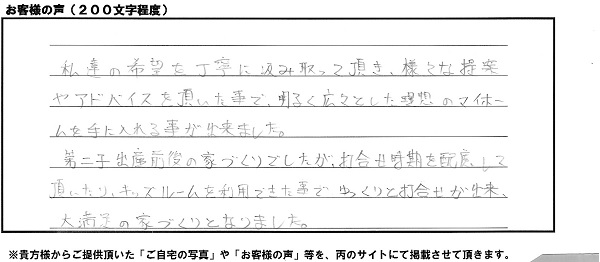 お客様の声（２００文字程度）
私達の希望を丁寧に汲み取って頂き、様々な提案
やアドバイスを頂いた事で、明るく広々とした理想のマイホー
ムを手に入れる事が出来ました。
第二子出産前後の家づくりでしたが、打合せ時期を配慮して
頂いたり、キッズルームを利用できた事でゆっくりと打合せが出来、
大満足の家づくりとなりました。
※貴方様からご提供頂いた「ご自宅の写真」や「お客様の声」等を、丙のサイトにて掲載させて頂きます。